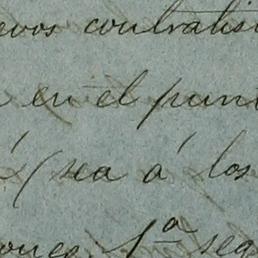 evos contratis
en el punt
(sea á los
1ª seg